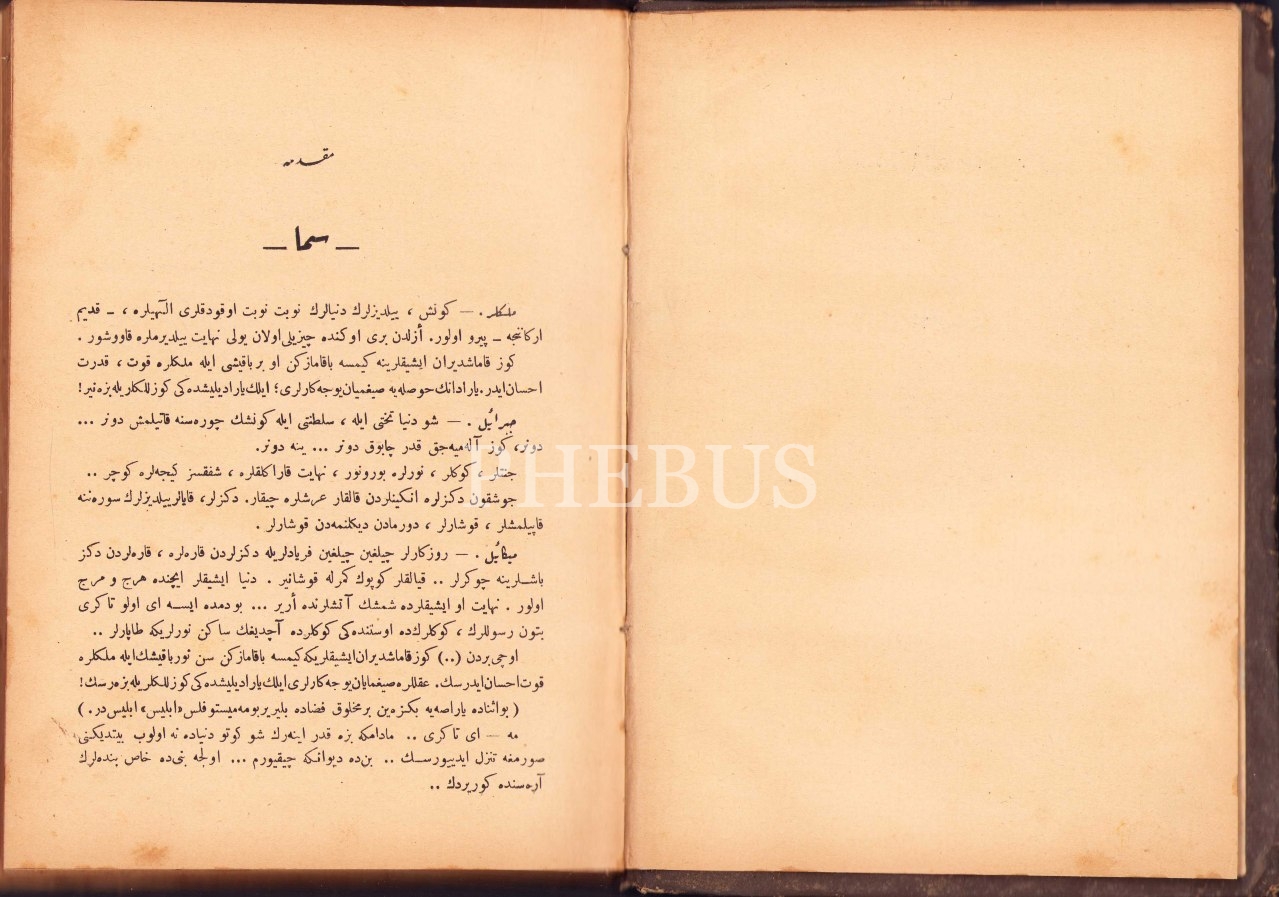 مقدمه
— سما —
ملكلر . — كونش ، ييلديزلرك دنيالرك نوبت نوبت اوقودقلرى الٓهيلره ، ـ قديم
اركانجه ـ پيرو اولور. أزلدن برى اوكنده چيزيلى اولان يولى نهايت ييلديرملره قاووشور .
كوز قاماشديران ايشيقلرينه كيمسه باقامازكن او بر باقيشى ايله ملكلره قوت ، قدرت
احسان ايدر. يارادانك حوصله‌يه صيغميان يوجه كارلرى؛ ايلك ياراديليشده كى كوزللكلريله بزه نير!
جبرائيل . — شو دنيا تختى ايله ، سلطنتى ايله كونشك چوره سنه قاتيلمش دونر ...
دونر، كوز آله‌ميه‌جق قدر چابوق دونر ... ينه دونر.
جنتلر ، كوكلر ، نورلره بورونور ، نهايت قاراكلقلره ، شفقسز كيجه‌لره كوچر ..
جوشقون دكزلره انكينلردن قالقار عرشلره چيقار. دكزلر، قايالر ييلديزلرك سوره‌ننه
قاپيلمشلر ، قوشارلر ، دورمادن ديكلنمه‌دن قوشارلر .
ميكائيل . — روزكارلر چيلغين چيلغين فريادلريله دكزلردن قاره‌لره ، قاره‌لردن دكز
باشلرينه چوكرلر .. قيالقلر كوپوك كمرله قوشانير . دنيا ايشيقلر ايچنده هرج و مرج
اولور . نهايت او ايشيقلرده شمشك آتشلرنده أرير ... بودمده ايسه اى اولو تاكرى
بتون رسوللرك ، كوكلرك‌ده اوستنده‌كى كوكلرده آچديغك ساكن نورلريكه طاپارلر ..
اوچى بردن (..) كوز قاماشديران ايشيقلريكه كيمسه باقامازكن سن نور باقيشك ايله ملكلره
قوت احسان ايدرسك. عقللره صيغمايان يوجه كارلرى ايلك ياراديليشده كى كوزللكلريله بزه رسك!
( بو اثناده ياراصه‌يه بكزه‌ين بر مخلوق فضاده بليرير بو مه‌ميستوفلس «ابليس» ابليس در. )
مه — اى تاكرى .. مادامكه بزه قدر اينه‌رك شو كوتو دنياده نه اولوب بيتديكنى
صورمغه تنزل ايدييورسك .. بن‌ده ديوانكه چيقيورم ... اولجه بنى‌ده خاص بنده‌لرك
آره‌سنده كوريردك ..
PHEBUS